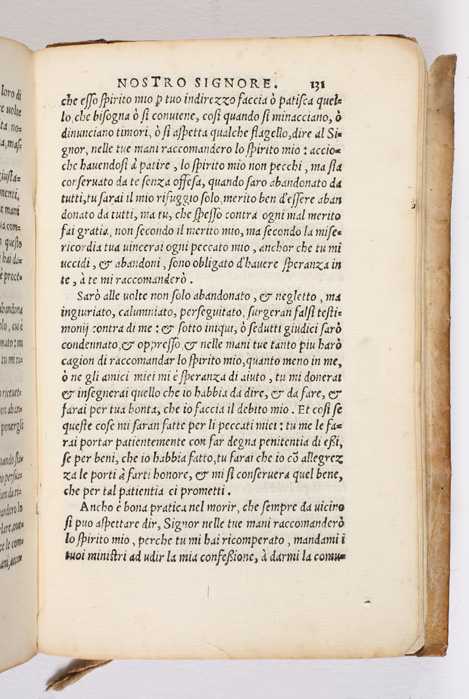 NOSTRO SIGNORE. 131
che esso spirito mio ꝑ tuo indirezzo faccia ò patisca quel-
lo, che bisogna ò si conviene, così quando si minacciano, ò
dinunciano timori, ò si aspetta qualche flagello, dire al Si
gnor, nelle tue mani raccomandero lo spirito mio : accio-
che havendosi à patire , lo spirito mio non pecchi , ma sia
conservato da te senza offesa, quando saro abandonato da
tutti, tu sarai il mio rifuggio solo, merito ben d'essere aban
donato da tutti, ma tu, che spesso contra ogni mal merito
fai gratia, non secondo il merito mio, ma secondo la mise-
ricordia tua vincerai ogni peccato mio , anchor che tu mi
uccidi , & abandoni , sono obligato d'havere speranza in
te , à te mi raccomanderò .
Sarò alle volte non solo abandonato , & negletto , ma
ingiuriato, calumniato, perseguitato, surgeran falsi testi-
monij contra di me : & sotto iniqui, ò sedutti giudici sarò
condennato, & oppresso & nelle mani tue tanto piu harò
cagion di raccomandar lo spirito mio, quanto meno in me,
ò ne gli amici miei mi è speranza di aiuto , tu mi donerai
& insegnerai quello che io habbia da dire, & da fare, &
farai per tua bonta, che io faccia il debito mio . Et così se
queste cose mi saran fatte per li peccati miei : tu me le fa-
rai portar patientemente con far degna penitentia di eßi,
se per beni, che io habbia fatto, tu farai che io cō allegrez
za le porti à farti honore, & mi si conservera quel bene,
che per tal patientia ci prometti .
Ancho è bona pratica nel morir, che sempre da vicino
si puo aspettare dir, Signor nelle tue mani raccomanderò
lo spirito mio , perche tu mi hai ricomperato , mandami i
tuoi ministri ad udir la mia confeßione, à darmi la comu-